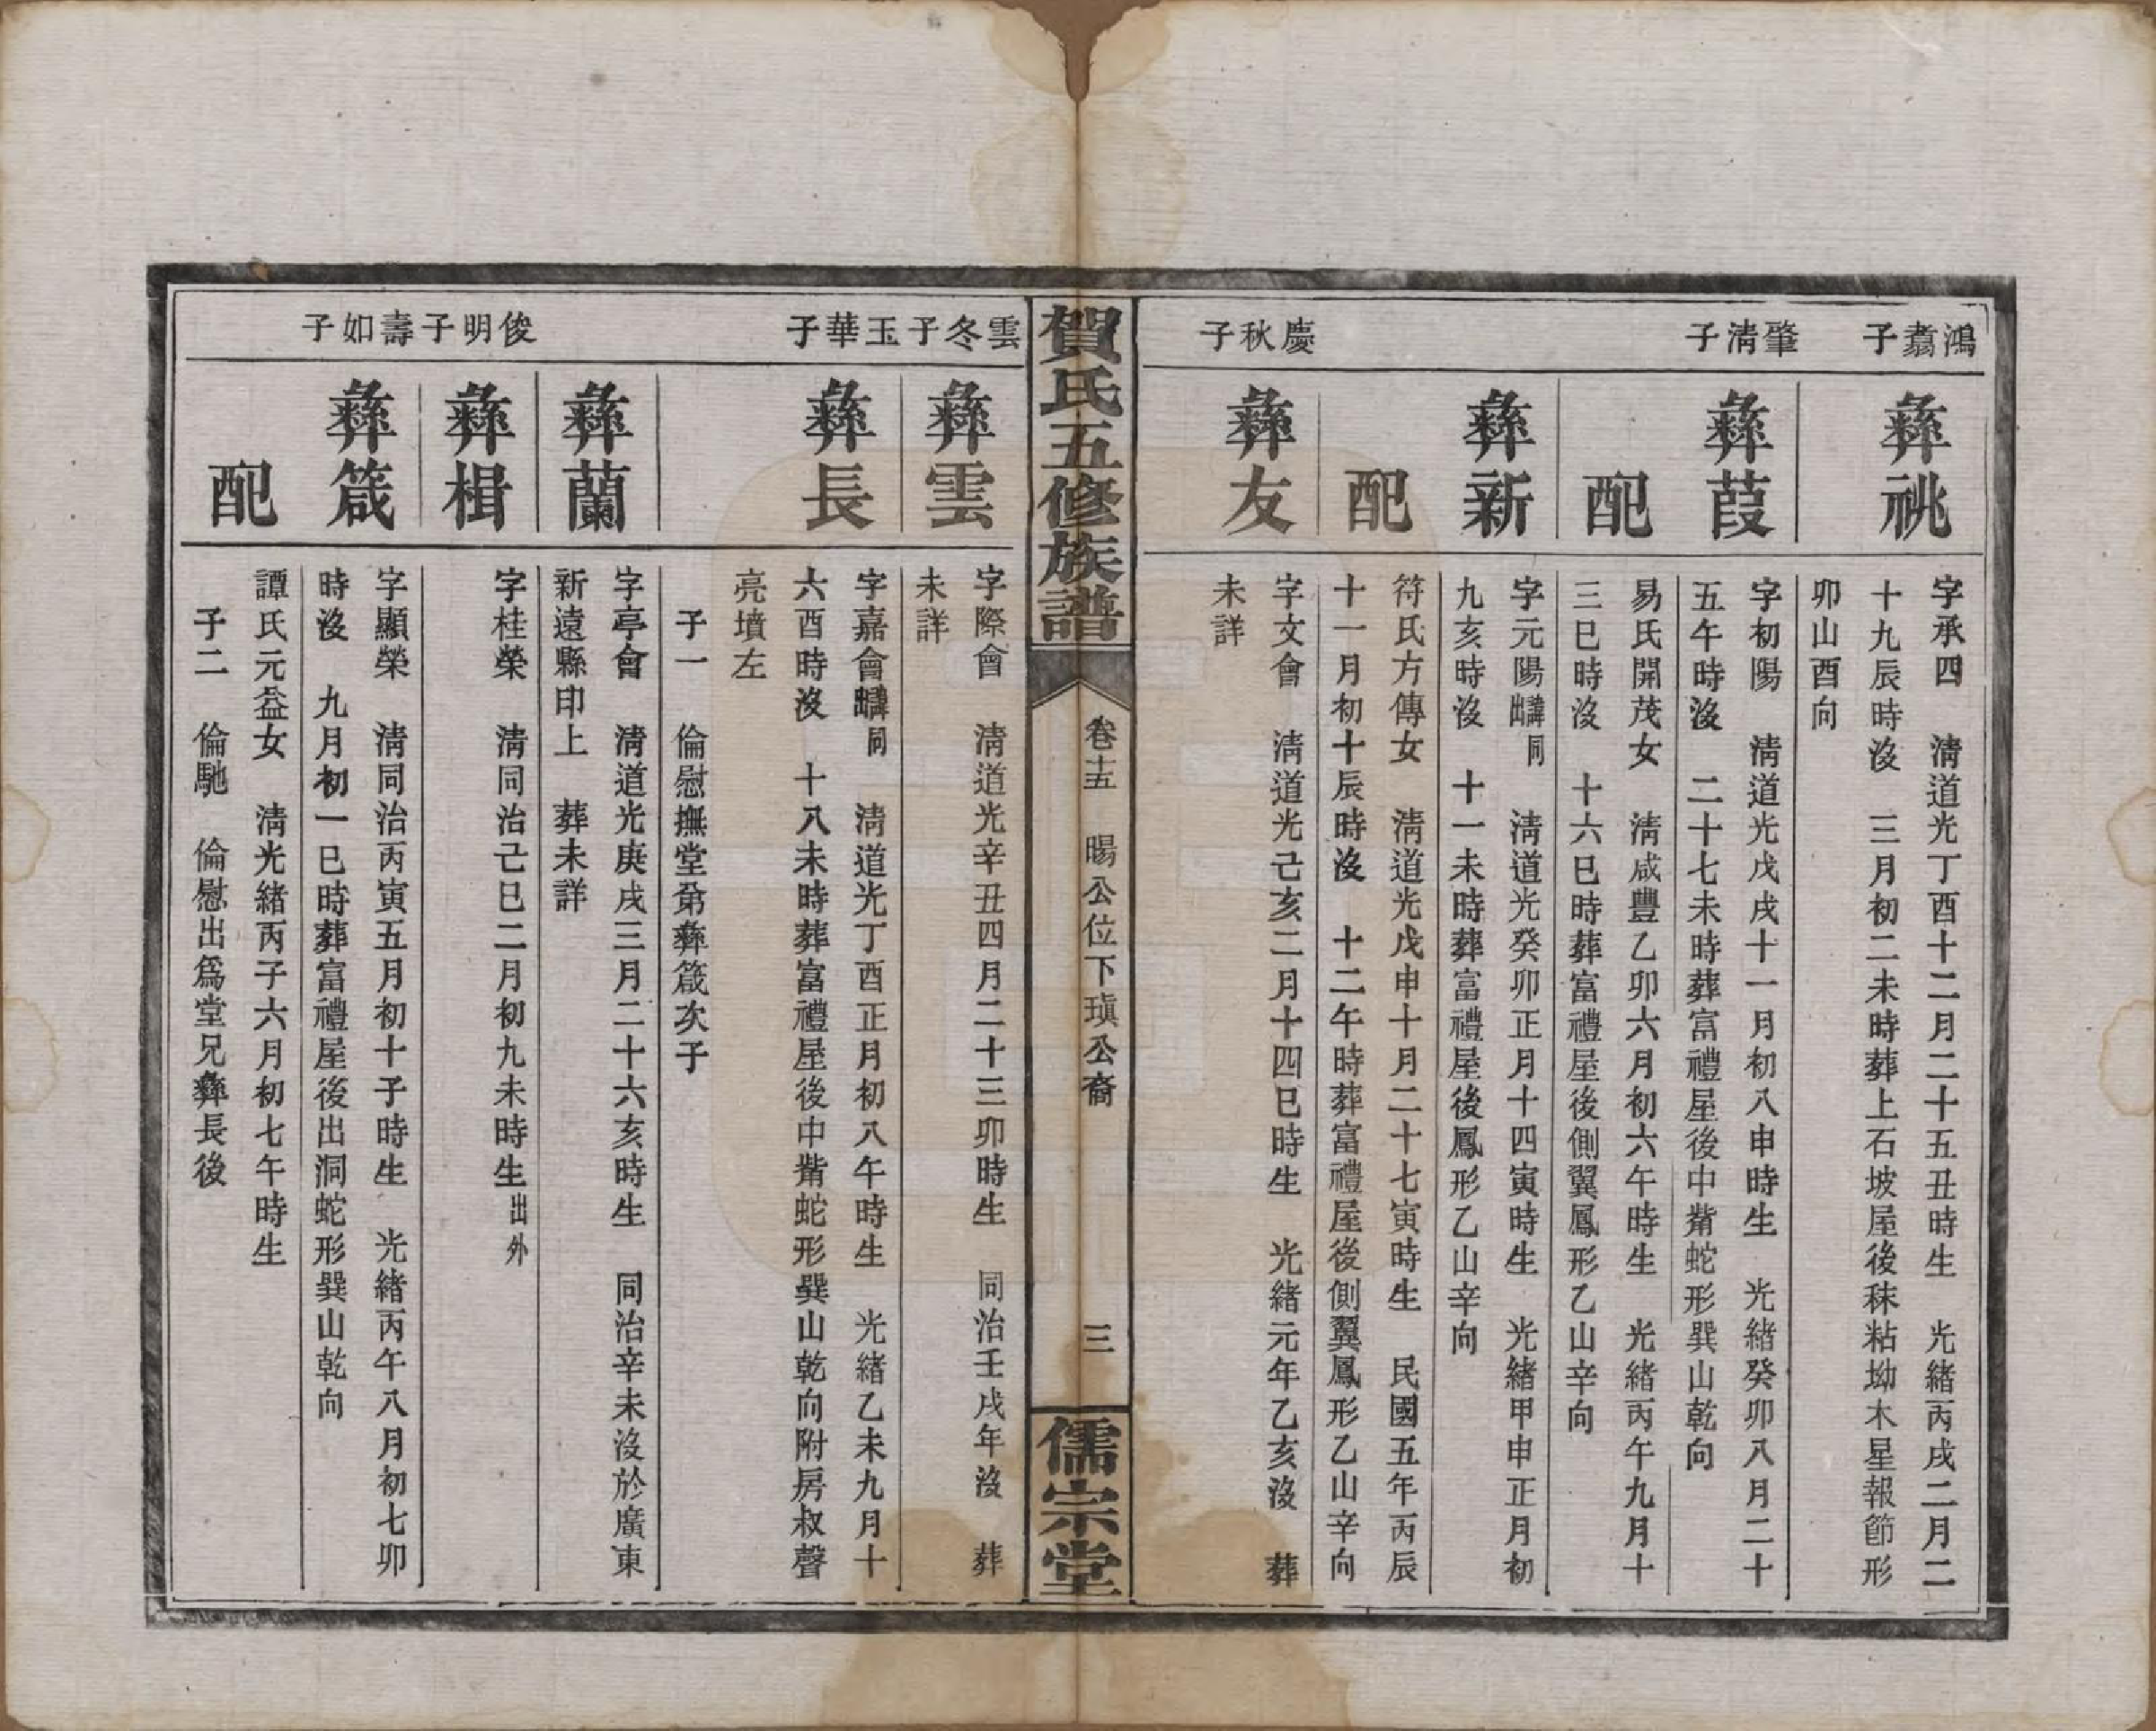 鴻翥子
彝祧
字承四　清道光丁酉十二月二十五丑時生　光緒丙戌二月二
十九辰時沒　三月初二未時葬上石坡屋後秣粘坳木星報節形
卯山酉向
肇清子
彝葭
字初陽　清道光戊戌十一月初八申時生　光緒癸卯八月二十
五午時沒　二十七未時葬富禮屋後中觜蛇形巽山乾向
配
易氏開茂女　清咸豐乙卯六月初六午時生　光緒丙午九月十
三巳時沒　十六巳時葬富禮屋後側翼鳳形乙山辛向
彝新
字元陽出譁同　清道光癸卯正月十四寅時生　光緒甲申正月初
九亥時沒　十一未時葬富禮屋後鳳形乙山辛向
配
符氏方傳女　清道光戊申十月二十七寅時生　民國五年丙辰
十一月初十辰時沒　十二午時葬富禮屋後側翼鳳形乙山辛向
慶秋子
彝友
字文會　清道光己亥二月十四巳時生　光緒元年乙亥沒　葬
未詳
賀氏五修族譜
卷十五　暘公位下瑱公裔
三
儒宗堂
雲冬子
彝雲
字際會　清道光辛丑四月二十三卯時生　同治壬戌年沒　葬
未詳
玉華子
彝長
字嘉會出譁同　清道光丁酉正月初八午時生　光緒乙未九月十
六酉時沒　十八未時葬富禮屋後中觜蛇形巽山乾向附房叔聲
亮墳左
子一　倫慰撫堂弟彝箴次子
彝蘭
字亭會　清道光庚戌三月二十六亥時生　同治辛未沒於廣東
新遠縣印上　葬未詳
俊明子
彝楫
字桂榮　清同治己巳二月初九未時生出外
壽如子
彝箴
字顯榮　清同治丙寅五月初十子時生　光緒丙午八月初七卯
時沒　九月初一巳時葬富禮屋後出洞蛇形巽山乾向
配
譚氏元益女　清光緒丙子六月初七午時生
子二　倫馳　倫慰出爲堂兄彝長後